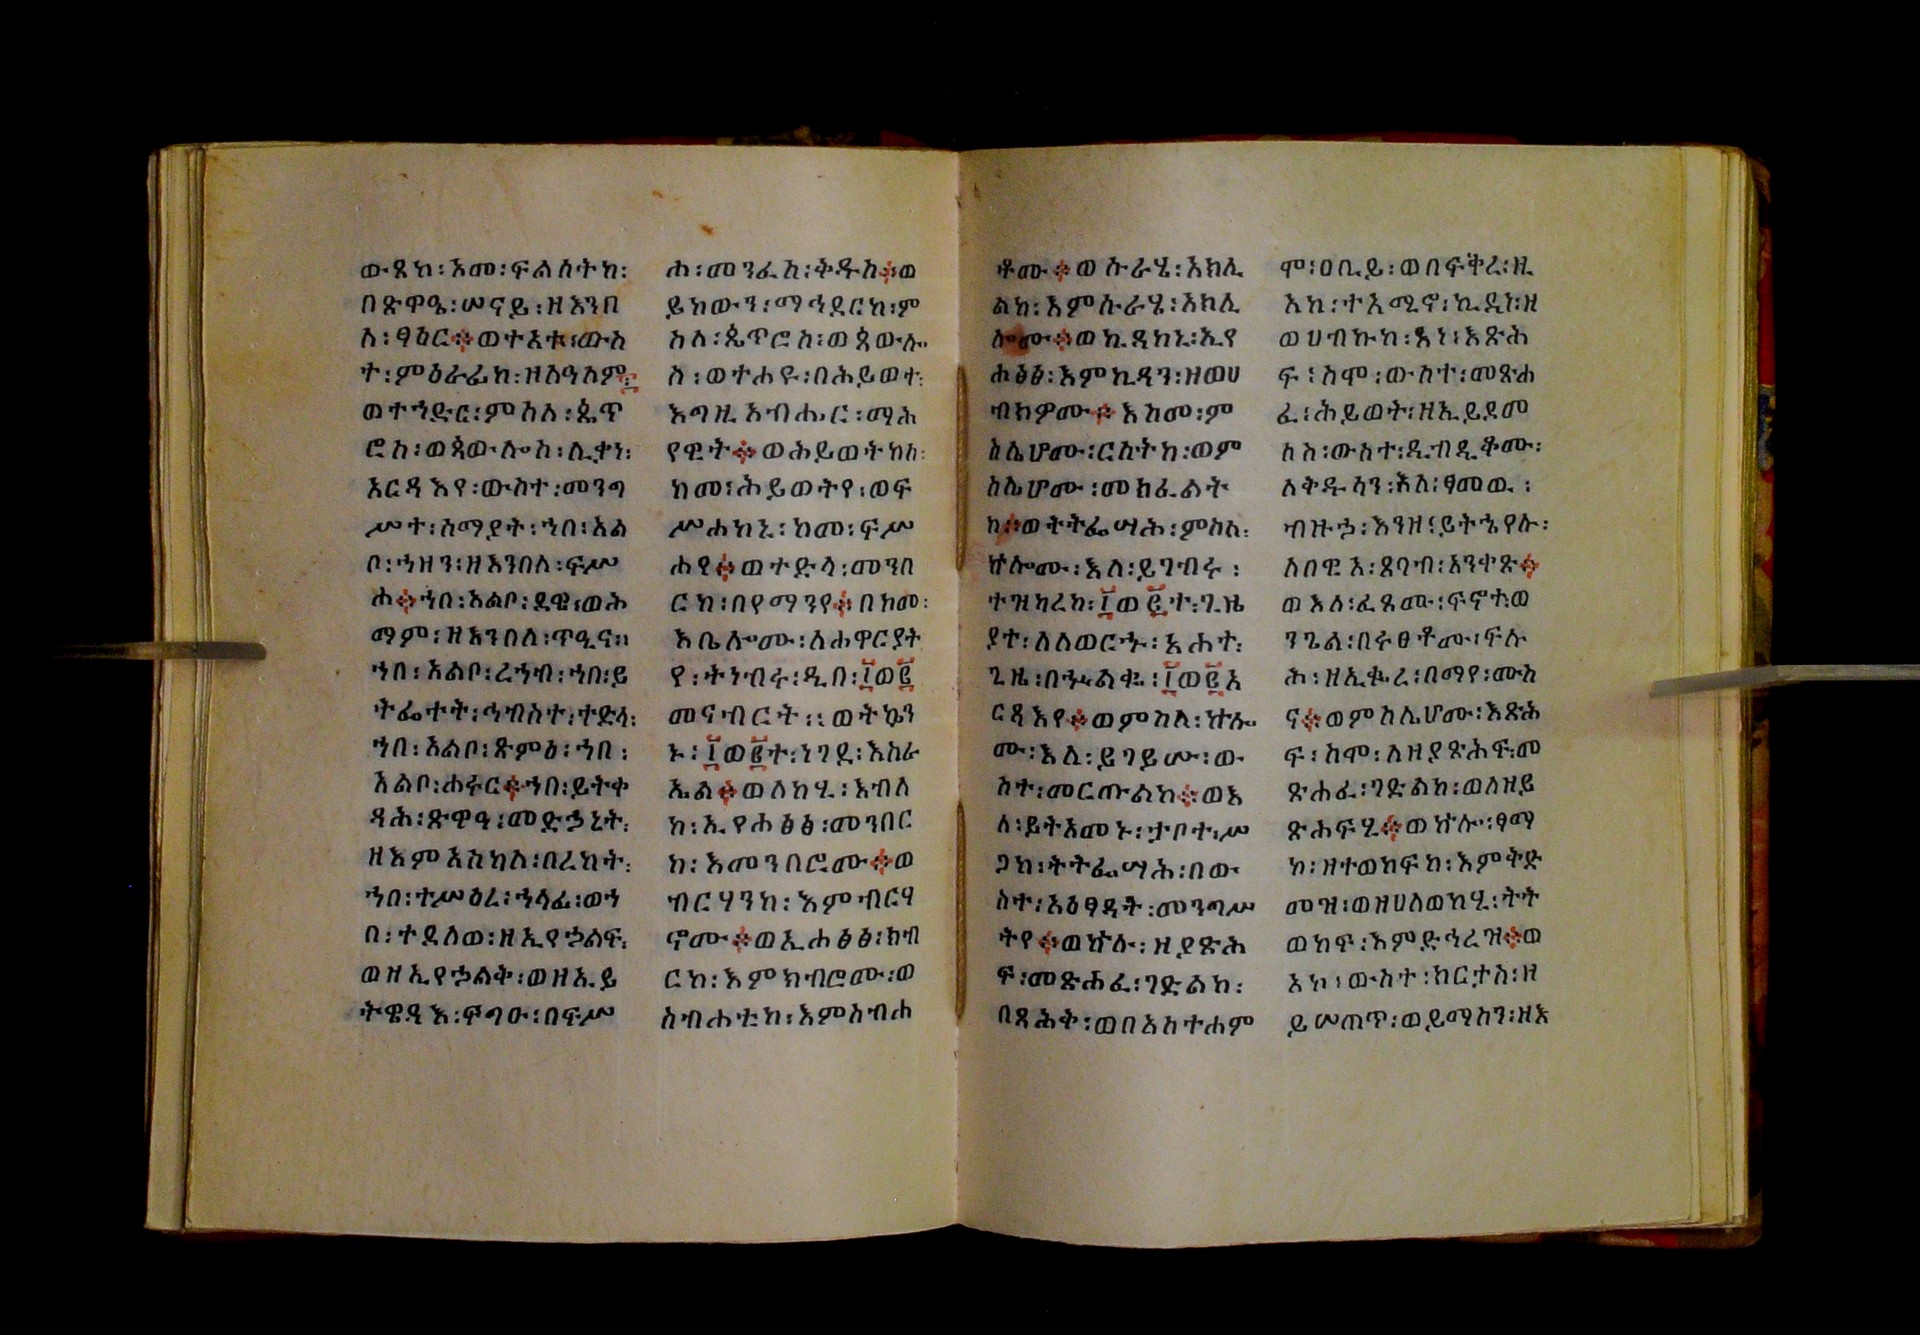 ውጻከ፡እመ፡ፍልሰትከ፡
በጽዋዔ፡ሠናይ፡ዘእንበ
ለ፡ፃዕር፨ወተአተ፡ውስ
ት፡ምዕራፊከ፡ዘሰዓሰም፡
ወተኀድር፡ምስለ፡ጴጥ
ሮስ፡ወጳውሎስ፡ሊቃነ፡
አርዳእየ፡ውስተ፡መንግ
ሥተ፡ሰማያት፡ኀበ፡አል
ቦ፡ኀዘን፡ዘእንበለ፡ፍሥ
ሐ፨ኀበ፡አልቦ፡ደዌ፡ወሕ
ማም፡ዘእንበለ፡ጥዒና።
ኀበ፡አልቦ፡ረኀብ፡ኀበ፡ይ
ትፌተት፡ኅብስተ፡ተድላ፡
ኀበ፡አልቦ፡ጽምዕ፡ኀበ፡
አልቦ፡ሐሩር፨ኀበ፡ይትቀ
ዳሕ፡ጽዋዓ፡መድኃኒት፡
ዘእምአስካሰ፡በረከት፡
ኀበ፡ተሥዕረ፡ኀላፊ፡ወኀ
በ፡ተደለወ፡ዘኢየኃልፍ፡
ወዘኢየኃልቅ፡ወዘኢይ
ትዌዲእ፡ፍግዑ፡በፍሥ
ሐ፡መንፈስ፡ቅዱስ፨ወ
ይከውን፡ማኅደርከ፡ም
ስለ፡ጴጥሮስ፡ወጳውሎ
ስ፡ወተሐዩ፡በሕይወተ፡
እግዚአብሔር፡ማሕ
የዊት፨ወሕይወትከሰ፡
ከመ፡ሕይወትየ፡ወፍ
ሥሐከኒ፡ከመ፡ፍሥ
ሐየ፨ወተድላ፡መንበ
ርከ፡በየማንየ፨በከመ፡
እቤሎሙ፡ለሐዋርያት
የ፡ትነብሩ፡ዲበ፡፲ወ፪
መናብርት፡፡ወትኴን
ኑ፡፲ወ፪ተ፡ነገደ፡እስራ
ኤል፨ወለከሂ፡እብለ
ከ፡ኢየሐፅፅ፡መንበር
ከ፡እመንበሮሙ፨ወ
ብርሃንከ፡እምብርሃ
ኖሙ፨ወኢሐፅፅ፡ክብ
ርከ፡እምክብሮሙ፡ወ
ስብሐቲከ፡እምስብሐ
ቶሙ፨ወሱራሄ፡አክሊ
ልከ፡እምሱራሄ፡አክሊ
ሎሙ፨ወኪዳከኒ፡ኢየ
ሐፅፅ፡እምኪዳን፡ዘወሀ
ብክዎሙ፨እስመ፡ም
ስሌሆሙ፡ርስትከ፡ወም
ስሌሆሙ፡መክፈልት
ከ፨ወትትፌሣሕ፡ምስለ፡
ኵሎሙ፡እለ፡ይገብሩ፡
ተዝካረከ፡፲ወ፪ተ፡ጊዜ
ያተ፡ለለወርኁ፡አሐተ፡
ጊዜ፡በኍልቈ፡፲ወ፪አ
ርዳእየ፨ወምስለ፡ኵሎ
ሙ፡እለ፡ይገይሡ፡ው
ስተ፡መርጡልከ፨ወእ
ለ፡ይትአመኑ፡ታቦተ፡ሥ
ጋከ፡ትትፌሣሕ፡በው
ስተ፡አፅፃዳት፡መንግሥ
ትየ፨ወኵሉ፡ዘያጽሕ
ፍ፡መጽሐፈ፡ገድልከ፡
በጻሕቅ፡ወበአስተሐም
ሞ፡ዐቢይ፡ወበፍቅረ፡ዚ
አከ፡ተአሚኖ፡ኪዲነ፡ዘ
ወሀብኩከ፡አነ፡እጽሕ
ፍ፡ስሞ፡ውስተ፡መጽሐ
ፈ፡ሕይወት፡ዘኢይደመ
ሰስ፡ውስተ፡ዲብዲቆሙ፡
ለቅዱሳን፡እለ፡ፃመዉ፡
ብዙኃ፡እንዘ፡ይትኄየሉ፡
ለበዊአ፡ጸባብ፡አንቀጽ፨
ወእለ፡ፈጸሙ፡ፍኖተ፡ወ
ንጌል፡በሩፀቶሙ፡ፍሱ
ሕ፡ዘኢቈረ፡በማየ፡ሙስ
ና፨ወምስሌሆሙ፡እጽሕ
ፍ፡ስሞ፡ለዘያጽሕፍ፡መ
ጽሐፈ፡ገድልከ፡ወለዘይ
ጽሕፍሂ፨ወኵሎ፡ፃማ
ከ፡ዘተወክፍከ፡እምቅድ
መዝ፡ወዘሀለወከሂ፡ትት
ወከፍ፡እምድኅረዝ፨ወ
አኮ፡ውስተ፡ክርታስ፡ዘ
ይሠጠጥ፡ወይማስን፡ዘእ